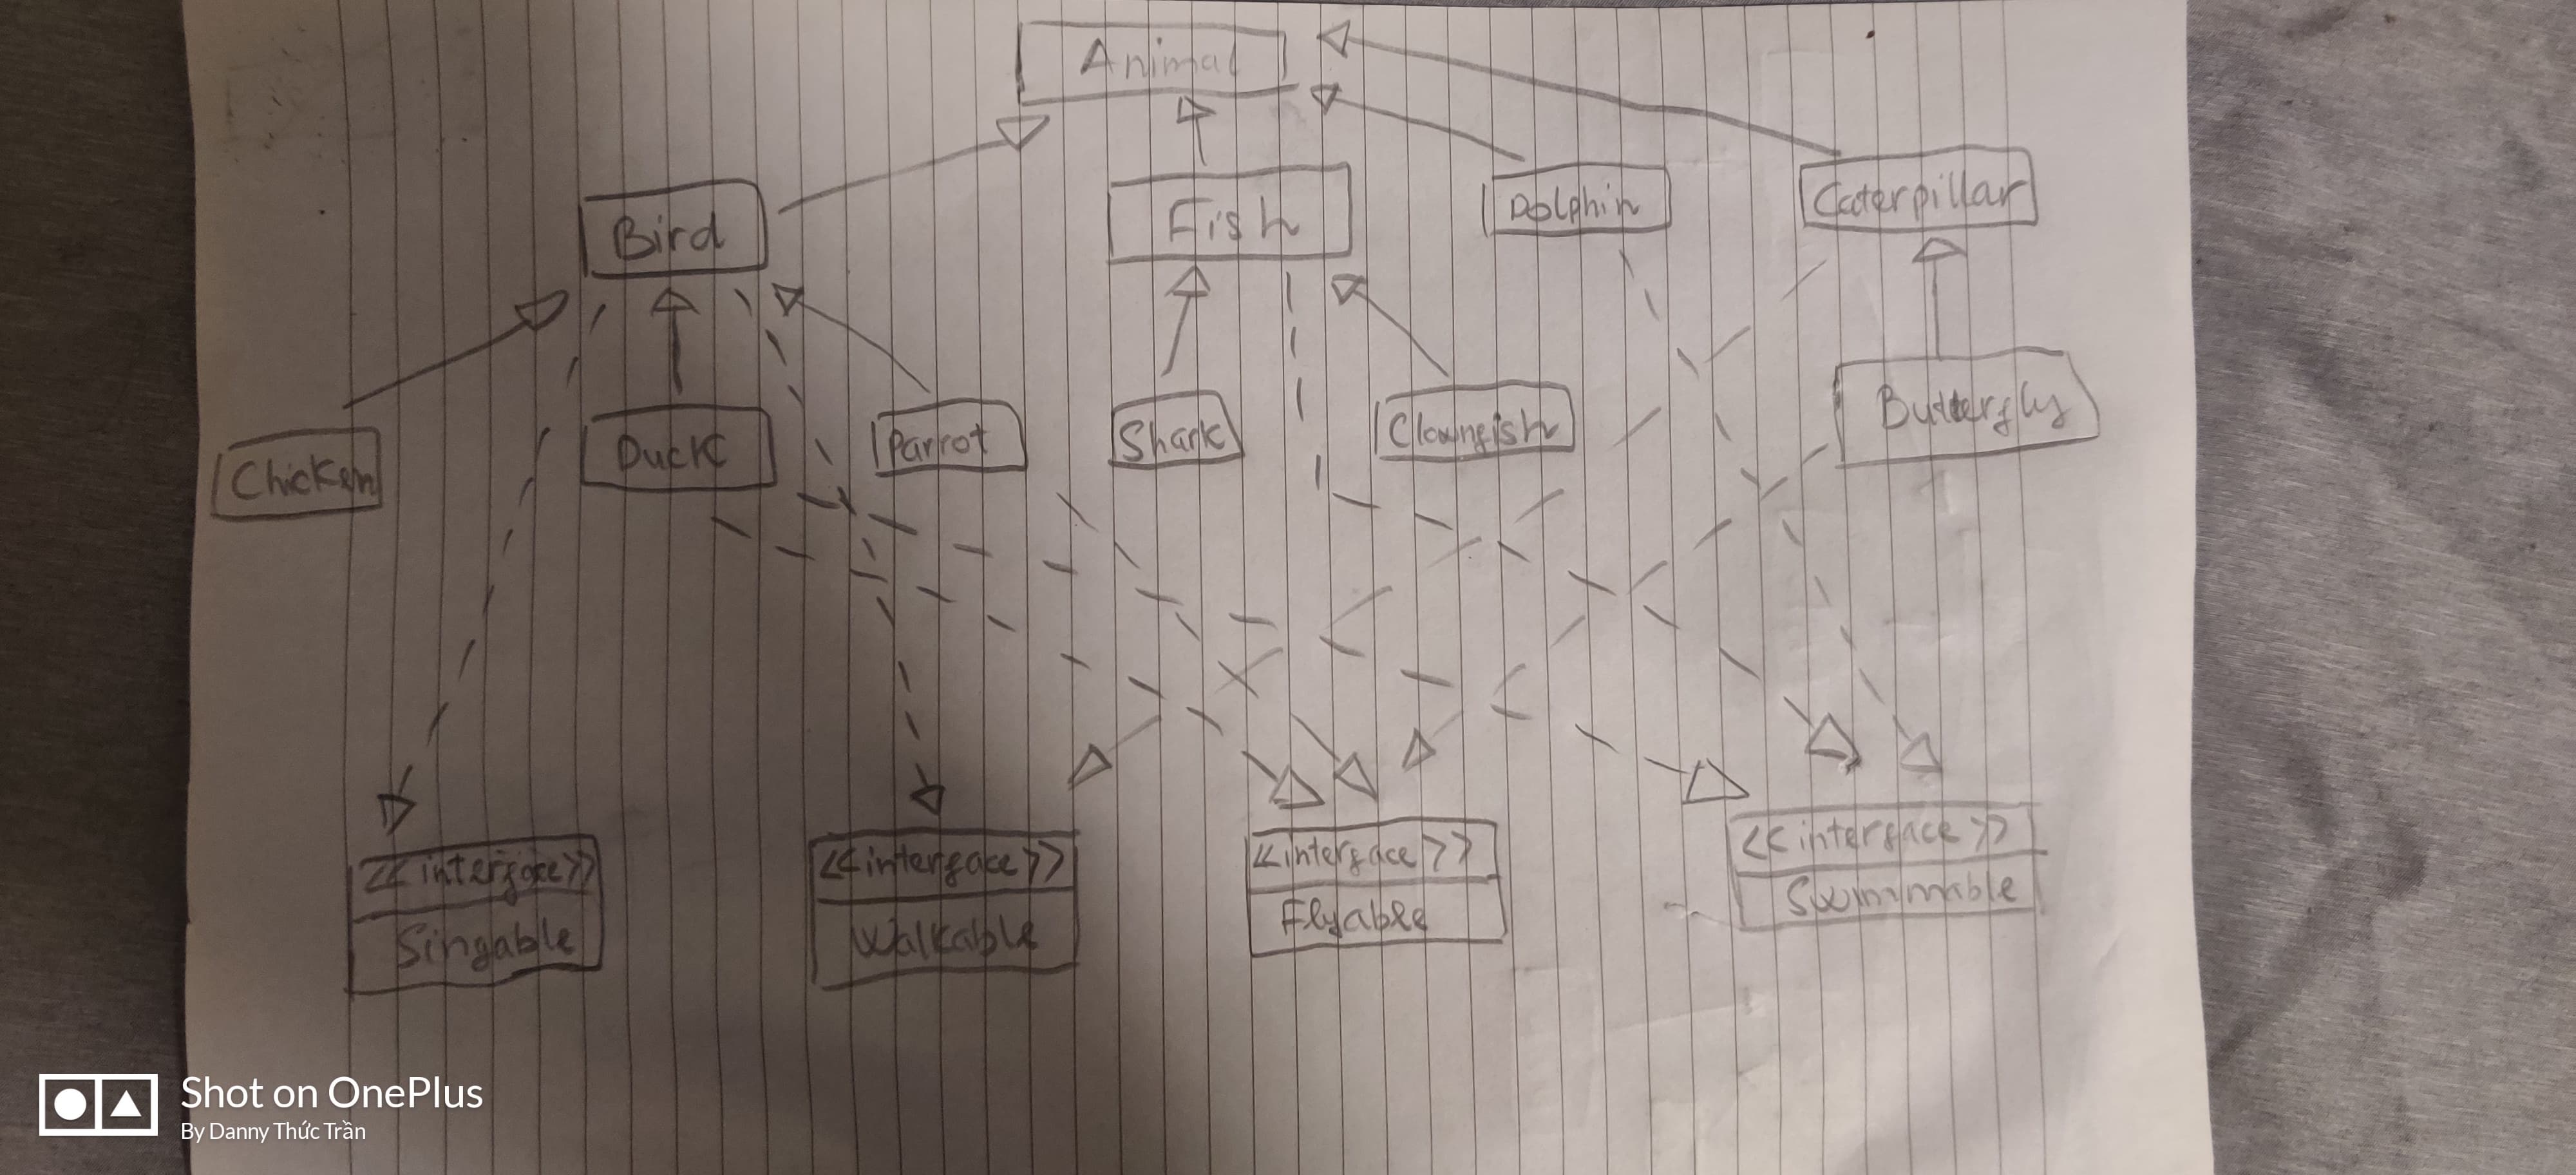 Animal
Bird
Fish
Dolphin
Caterpillar
Chicken
Duck
Parrot
Shark
Clownfish
Butterfly
<<interface>>
Singable
<<interface>>
Walkable
<<interface>>
Flyable
<<interface>>
Swimmable
Shot on OnePlus
By Danny Thức Trần